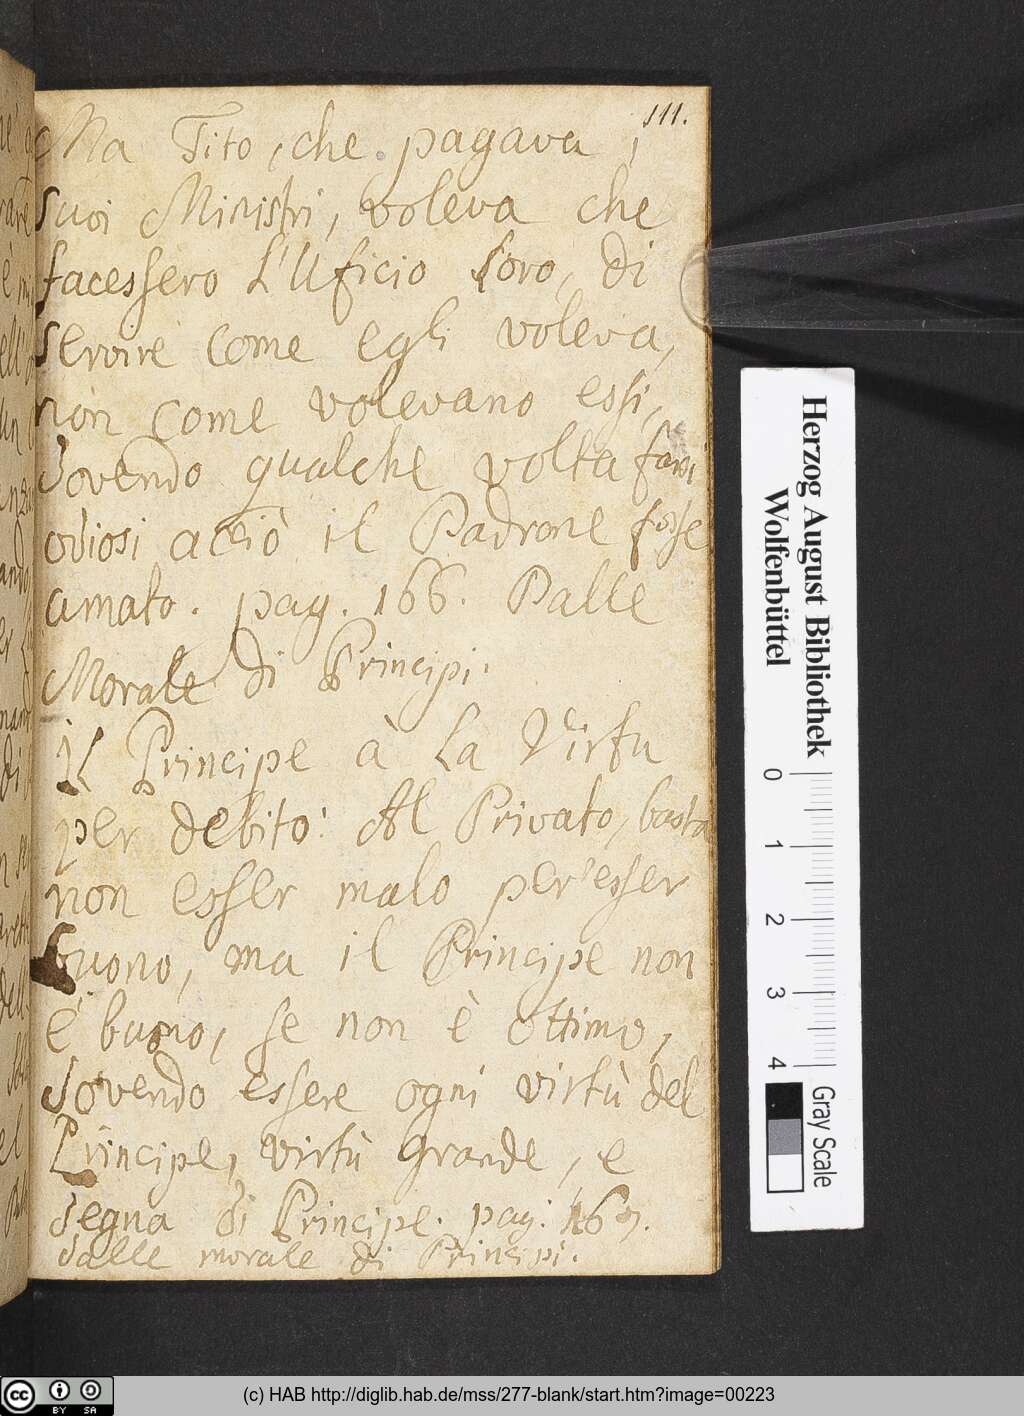 111.
Ma Tito, che pagava i
suoi Ministri, voleva che
facessero l'Uficio loro, di
servire come egli voleva,
non come volevano essi,
dovendo qualche volta farsi
odiosi acciò il Padrone fosse
amato. pag. 166. Dalle
Morale di Principi.
Il Principe à la Virtu
per debito: Al Privato, basta
non esser malo per esser
buono, ma il Principe non
è buono, se non è ottimo,
dovendo essere ogni virtù del
Principe, virtù grande, e
degna di Principe. pag. 167.
dalle morale di Principi.
Herzog August Bibliothek
Wolfenbüttel
0 1 2 3 4
Gray Scale
(c) HAB http://diglib.hab.de/mss/277-blank/start.htm?image=00223
cc BY SA